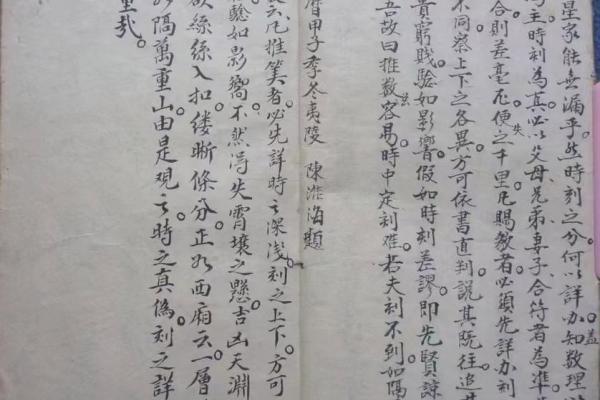 星家能無漏乎。然時刻之分。何以詳加知數理
蓋
為主時刻為真。必以父母兄弟妻子合符者為準。
合則差毫厘。便之千里。凡賜教者必須先詳加刻
失
不同察上下之各異。方可依書直判說其既往追其
貴窮賤驗如影響。假如時刻差謬。即先賢諒
吾故曰推數容易。時中定刻難。若夫刻不到。如隔
曆甲子季冬夷陵 陳淮海題
云凡推筭者。必先詳時之深淺。刻之上下。方可
驗如影響。不然得失霄壤之懸。吉凶天淵
欲絲絲入扣。缕晰條分。正如西廂云一層
如隔萬重山。由是觀之。時之真偽。刻之詳
重哉。